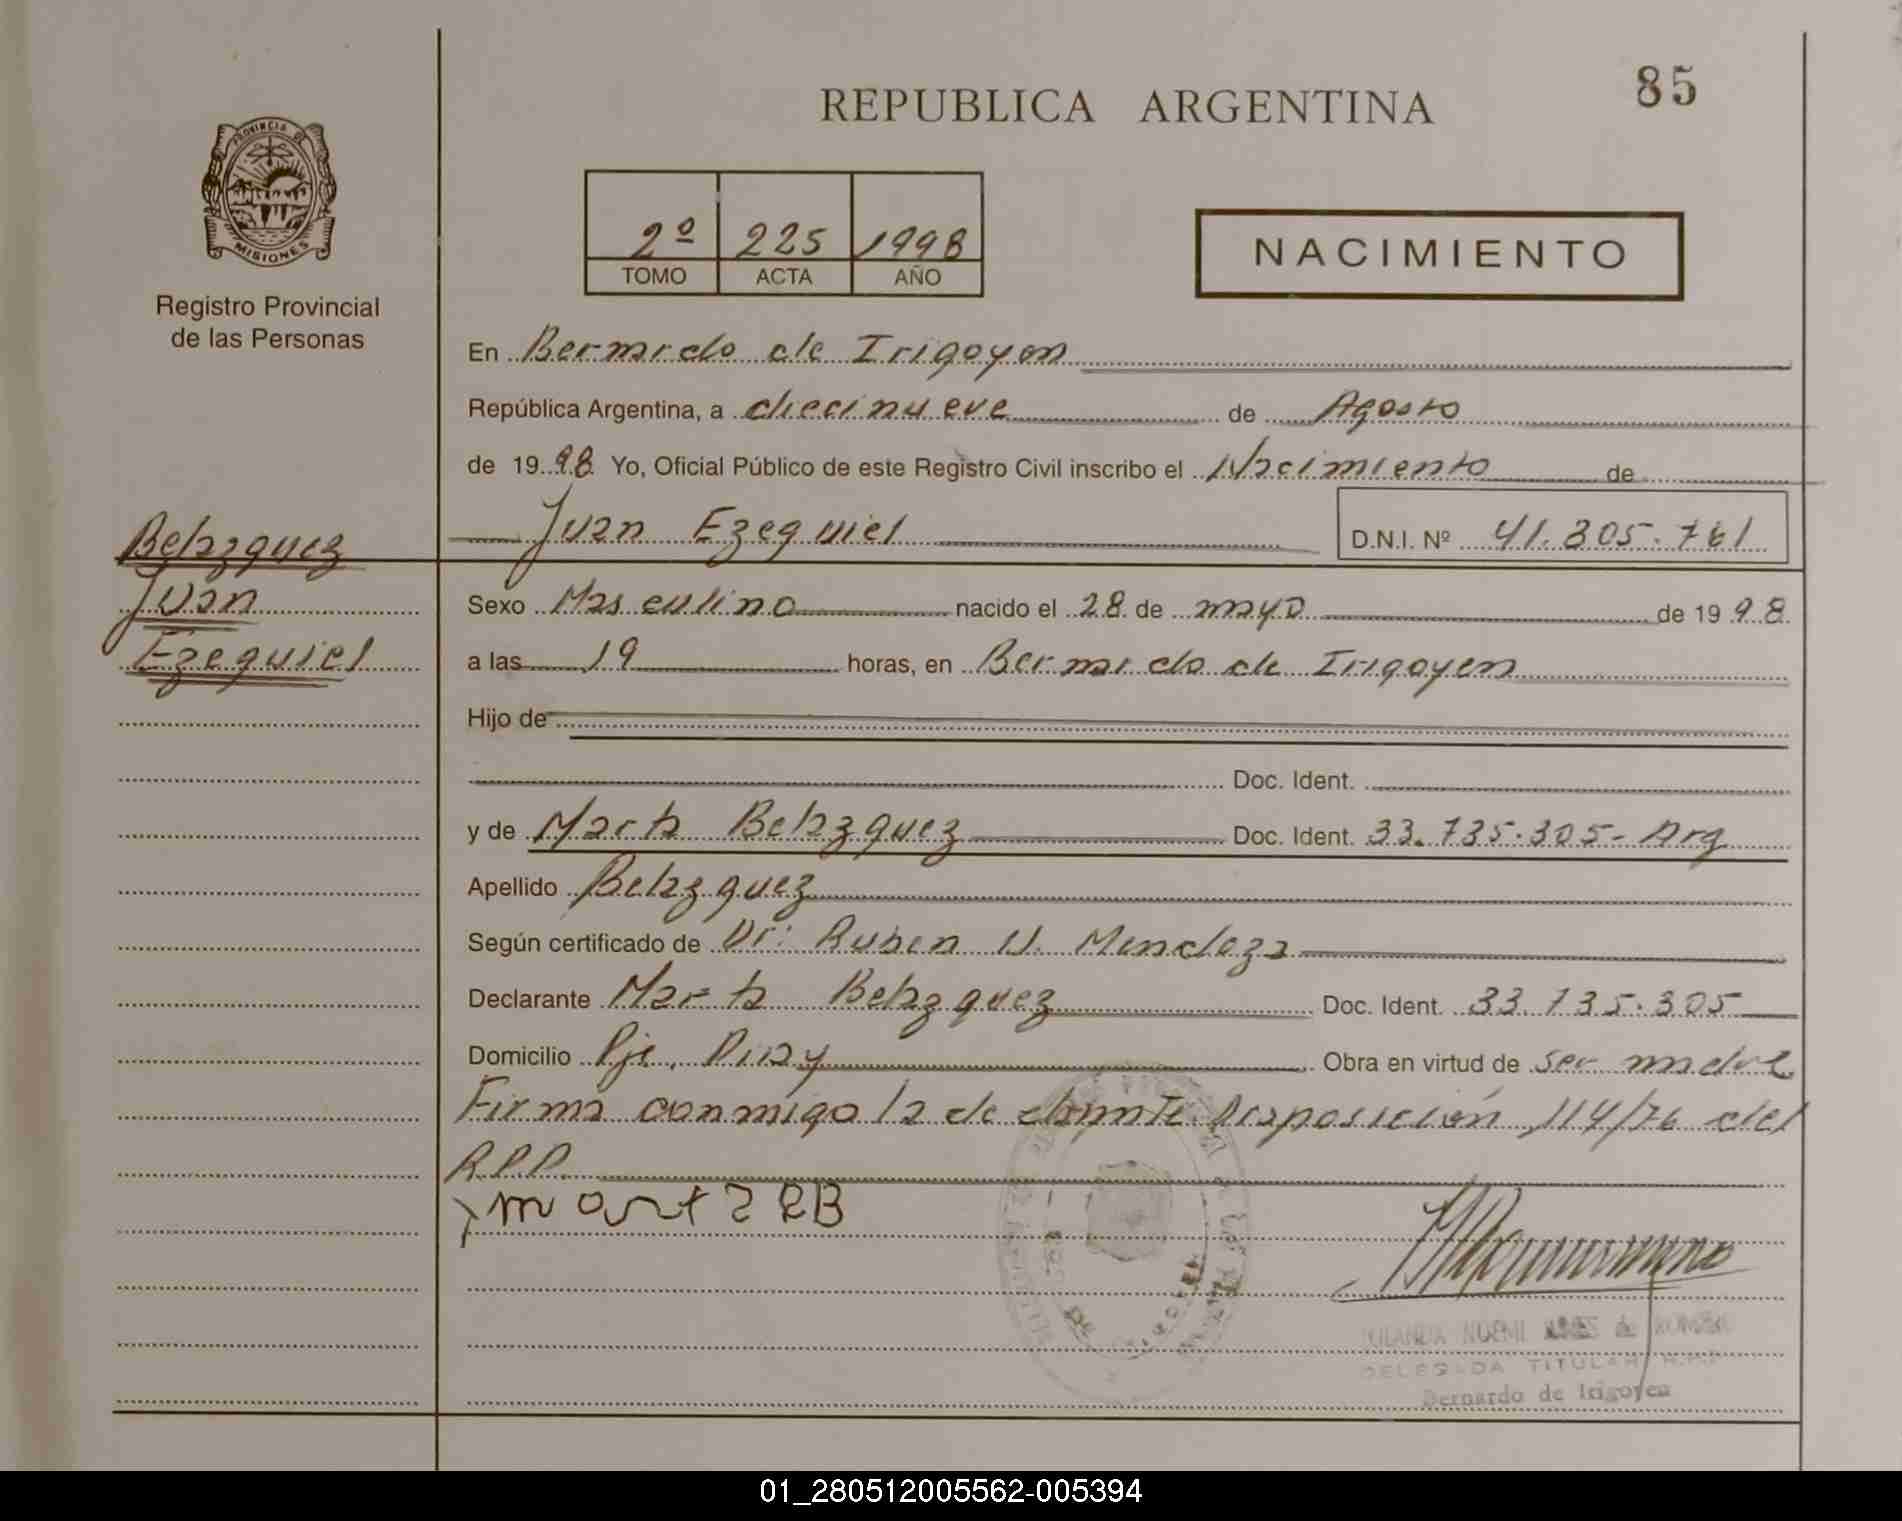 85
REPUBLICA ARGENTINA
PROVINCIA DE
MISIONES
Registro Provincial
de las Personas
2º 225 1998
TOMO ACTA AÑO
NACIMIENTO
En Bernardo de Irigoyen
República Argentina, a diecinueve de Agosto
de 19 98 Yo, Oficial Público de este Registro Civil inscribo el Nacimiento de
Juan Ezequiel D.N.I. Nº 41.305.761
Belazquez
Juan
Ezequiel
Sexo Masculino nacido el 28 de mayo de 19 98
a las 19 horas, en Bernardo de Irigoyen
Hijo de
Doc. Ident.
y de Marta Belazquez Doc. Ident. 33.735.305- Arg
Apellido Belazquez
Según certificado de Dr. Ruben N. Mendoza
Declarante Marta Belazquez Doc. Ident. 33.735.305
Domicilio Pje. Obra en virtud de ser madre
Firma conmigo la Disposición 114/76 del
R.P.P.
marta RB
NOEMI
DELEGADA TITULAR R.P.P.
Bernardo de Irigoyen
01_280512005562-005394